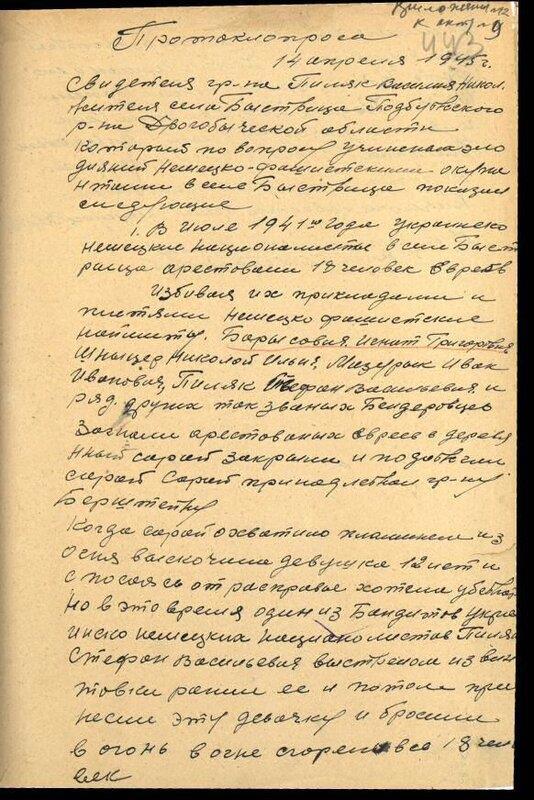 Приложение №2
к акту №9
443
Протокл опроса
14 апреля 1945 г.
Свидетеля гр-на Пиляк Василия Никол.
жителя села Быстрица Подбужского
р-на Дрогобыческой области
который по вопросу учинения зло
дияний немецко-фашистскими окупа
нтами в селе Быстрица показал
следующие
1. В июле 1941го года украинско
немецкие националисты в селе Быст
рица арестовали 18 человек Евреев
Избивая их прикладами и
плетями немецко фашистские
Игнат Григоровия
Николой Илья, Мазурык Иван
Иванович, Пиляк Стефан Васильевия и
ряд других так званых Бендеровцев
Загнали арестованых евреев в деревя
нный сарай закрыли и подожгли
сарай Сарай принадлежал гр-ну
Берштейну
Когда сарай охватило пламенем из
огня выскочила девушка 12 лет и
спосаясь от расправы хотела убежать
Но в это время один из Бандитов украи
инско немецких националистов Пиляк
Стефан Васильевия выстрелом из вин
товки ранил ее и потом при
несли эту девочку и бросили
в огонь в огне сгорели все 18 чело
век